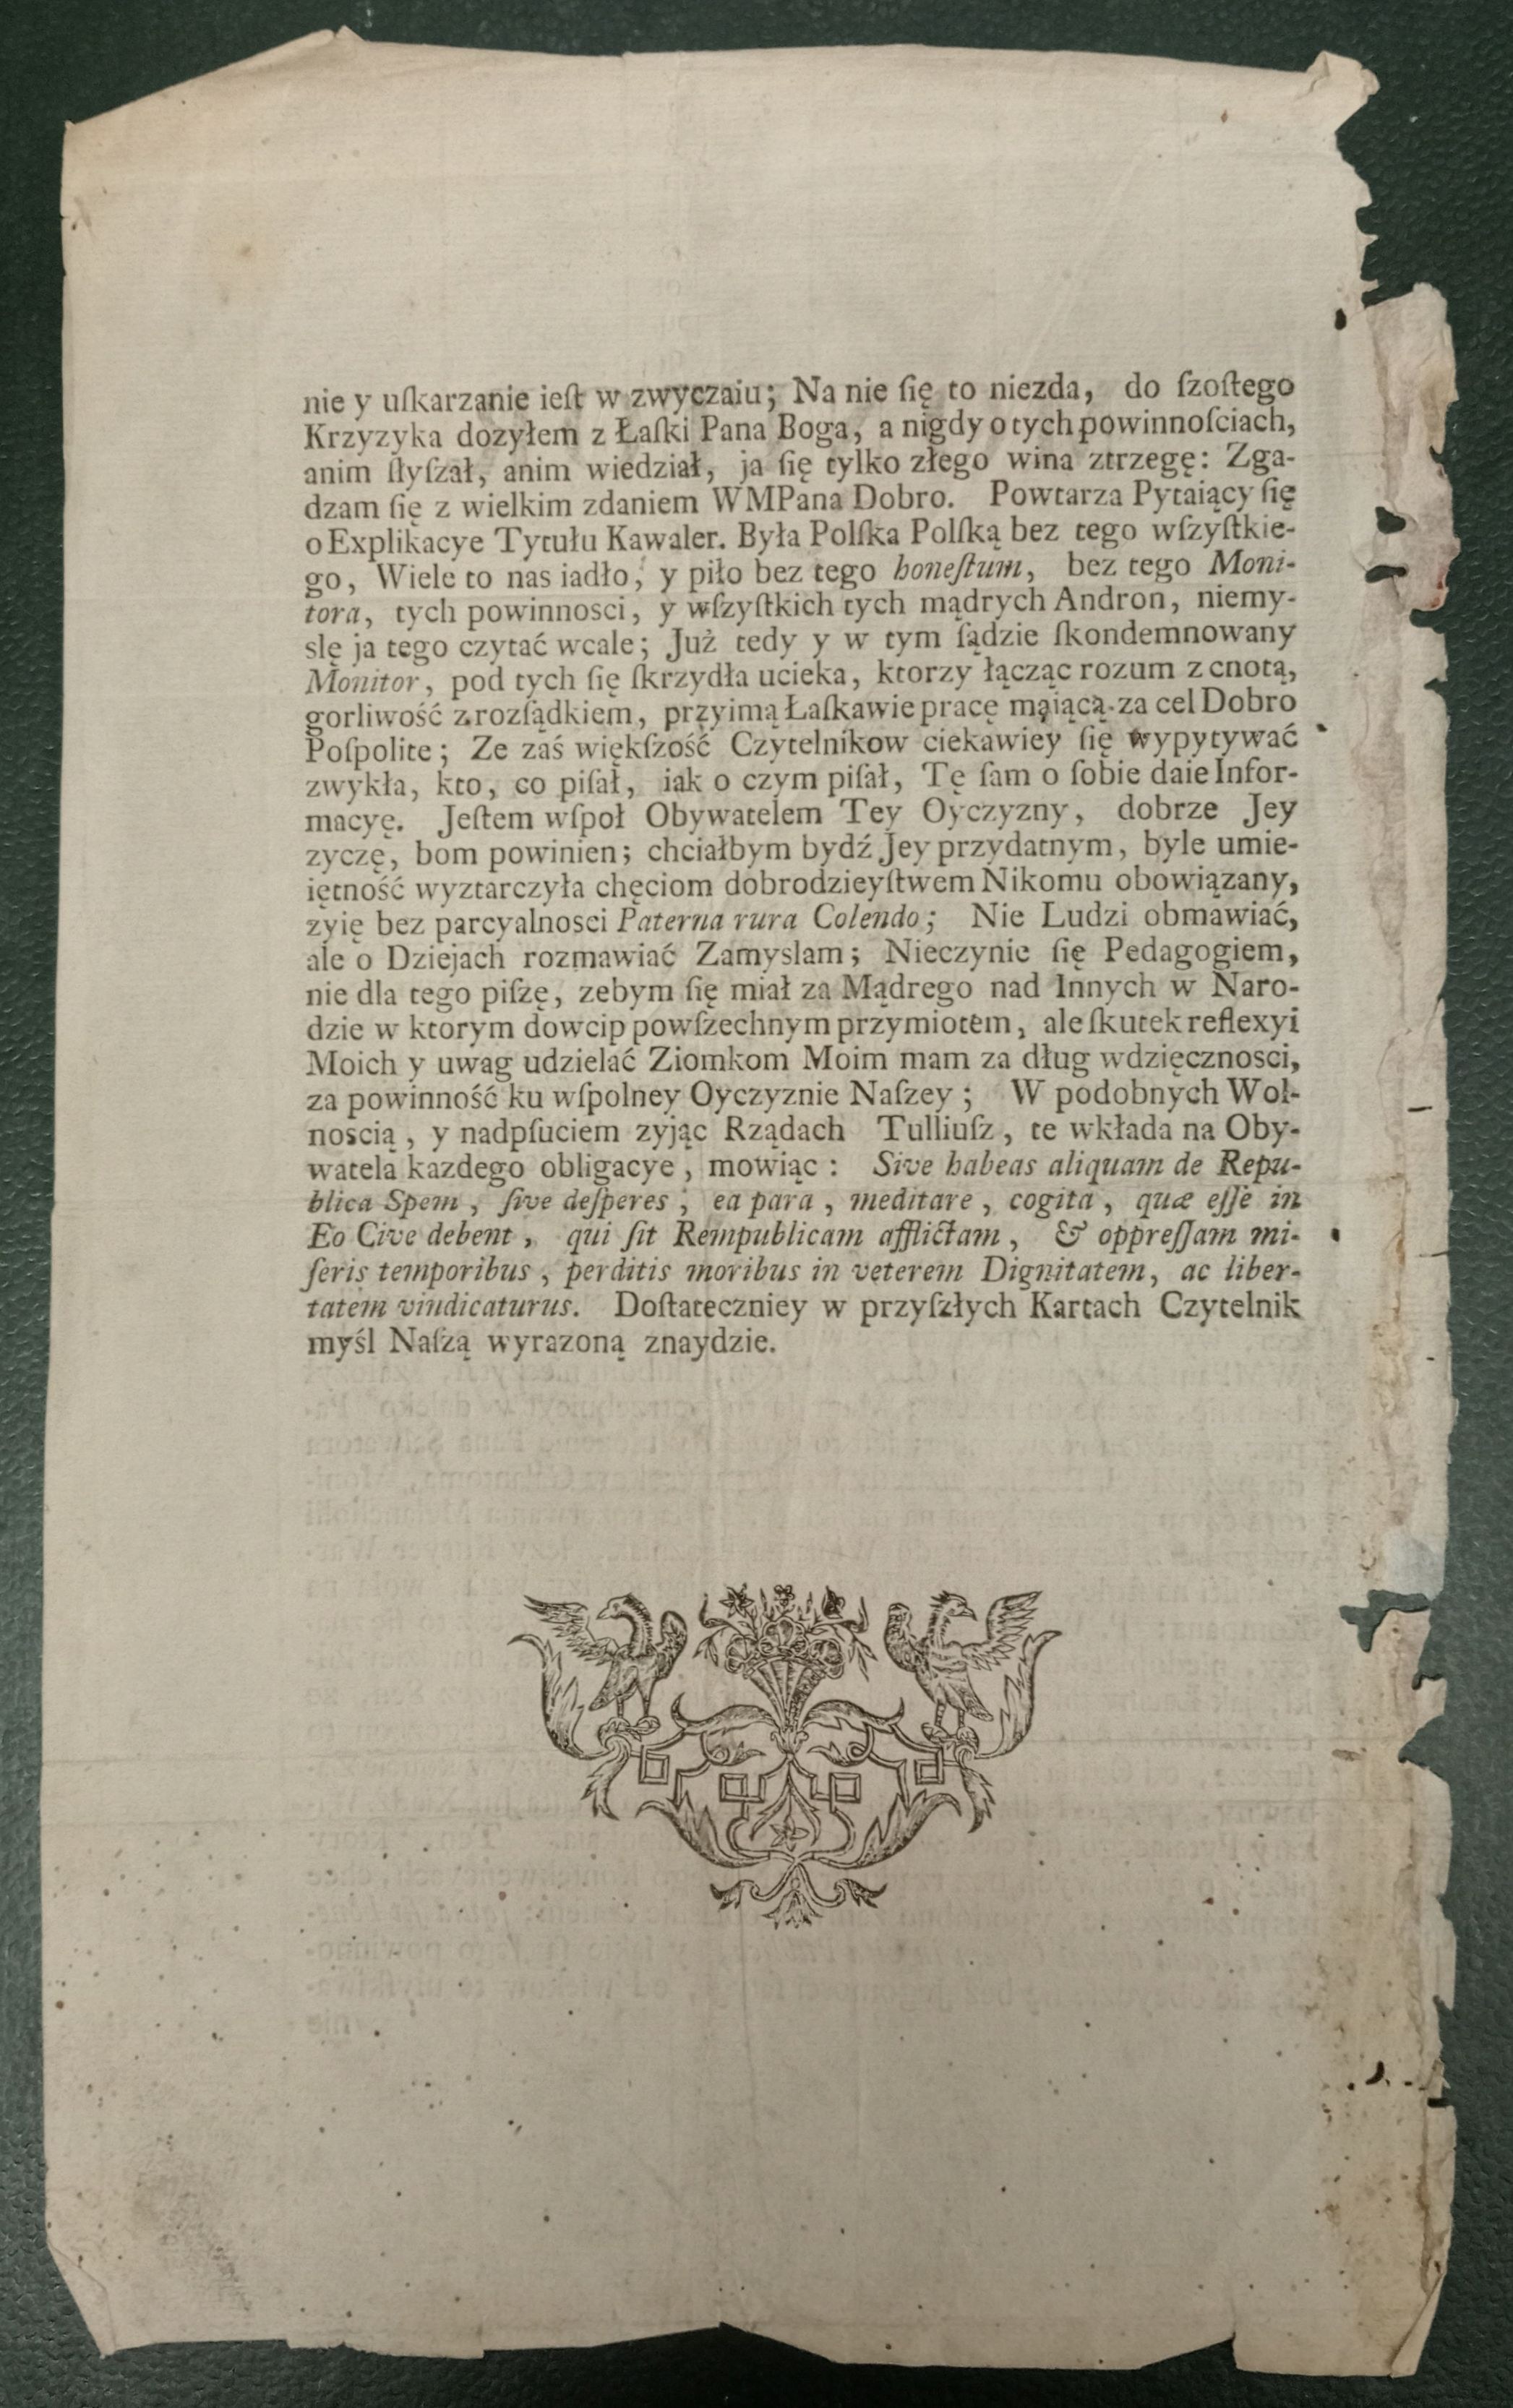 nie y uſkarzanie ieſt w zwyczaiu; Na nie ſię to niezda, do ſzoſtego
Krzyzyka dozyłem z Łaſki Pana Boga, a nigdy o tych powinnoſciach,
anim ſlyſzał, anim wiedział, ja ſię tylko złego wina ztrzegę: Zga-
dzam ſię z wielkim zdaniem WMPana Dobro. Powtarza Pytaiący ſię
o Explikacye Tytułu Kawaler. Była Polſka Polſką bez tego wſzyſtkie-
go, Wiele to nas iadło, y piło bez tego honeſtum, bez tego Moni-
tora, tych powinnosci, y wſzyſtkich tych mądrych Andron, niemy-
slę ja tego czytać wcale; Już tedy y w tym ſądzie ſkondemnowany
Monitor, pod tych ſię ſkrzydła ucieka, ktorzy łącząc rozum z cnotą,
gorliwość z rozſądkiem, przyimą Łaſkawie pracę maiącą za cel Dobro
Poſpolite; Ze zaś więkſzość Czytelnikow ciekawiey ſię wypytywać
zwykła, kto, co piſał, iak o czym piſał, Tę ſam o ſobie daie Infor-
macyę. Jeſtem wſpoł Obywatelem Tey Oyczyzny, dobrze Jey
zyczę, bom powinien; chciałbym bydź Jey przydatnym, byle umie-
iętność wyztarczyła chęciom dobrodzieyſtwem Nikomu obowiązany,
zyię bez parcyalnosci Paterna rura Colendo; Nie Ludzi obmawiać,
ale o Dziejach rozmawiać Zamyslam; Nieczynie ſię Pedagogiem,
nie dla tego piſzę, zebym ſię miał za Mądrego nad Innych w Naro-
dzie w ktorym dowcip powſzechnym przymiotem, ale ſkutek reflexyi
Moich y uwag udzielać Ziomkom Moim mam za dług wdzięcznosci,
za powinność ku wſpolney Oyczyznie Naſzey; W podobnych Wol-
noscią, y nadpſuciem zyjąc Rządach Tulliuſz, te wkłada na Oby-
watela kazdego obligacye, mowiąc: Sive habeas aliquam de Repu-
blica Spem, ſive deſperes; ea para, meditare, cogita, quæ eſſe in
Eo Cive debent, qui ſit Rempublicam afflictam, & oppreſſam mi-
ſeris temporibus, perditis moribus in veterem Dignitatem, ac liber-
tatem vindicaturus. Doſtateczniey w przyſzłych Kartach Czytelnik
myśl Naſzą wyrazoną znaydzie.